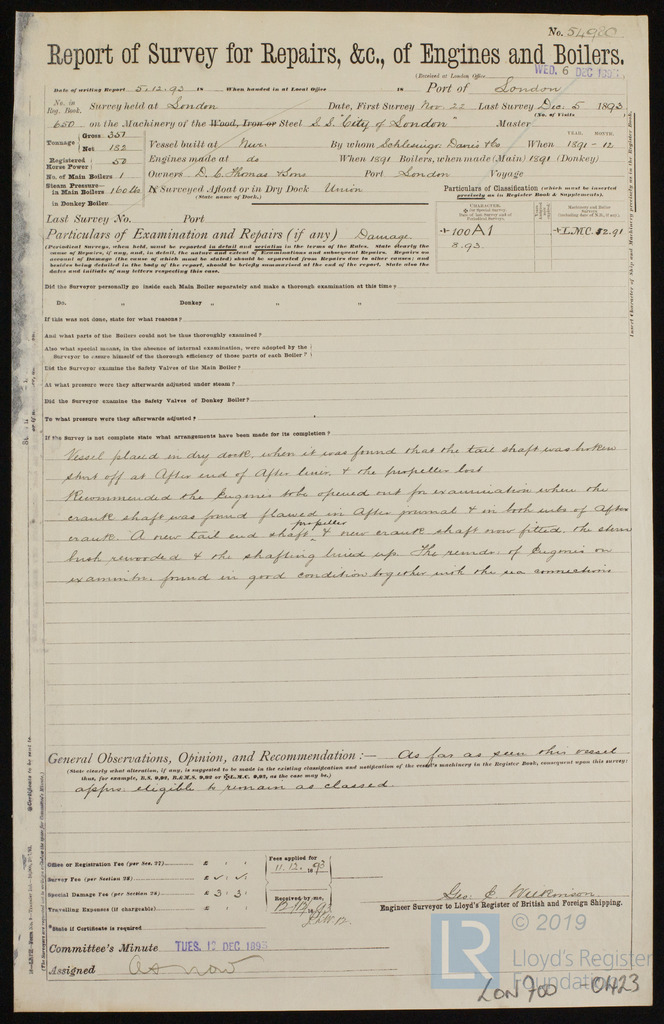 No. 54980
Report of Survey for Repairs, &c., of Engines and Boilers.
(Received at London Office WED. 6 DEC 1893
Date of writing Report 5.12.93 18 When handed in at Local Office 18 Port of London
No. in Reg. Book. Survey held at London Date, First Survey Nov. 22 Last Survey Dec. 5 1893
(No. of Visits
650 on the Machinery of the Wood, Iron or Steel S.S. "City of London" Master
Tonnage Gross 337 Net 152
YEAR. MONTH.
Vessel built at Nwc. By whom Schlesinger Davis & Co When 1891-12
Registered Horse Power 50
Engines made at do When 1891 Boilers, when made (Main) 1891 (Donkey)
No. of Main Boilers 1
Owners D. C. Thomas & Sons Port London Voyage
Steam Pressure in Main Boilers 160 lbs
If Surveyed Afloat or in Dry Dock Union
(State name of Dock.)
in Donkey Boiler
Particulars of Classification (which must be inserted precisely as in Register Book & Supplements).
Last Survey No. Port
CHARACTER.
+100A1
8.93.
+L.M.C. 12.91
Particulars of Examination and Repairs (if any) Damage
(Periodical Surveys, when held, must be reported in detail and seriatim in the terms of the Rules. State clearly the
cause of Repairs, if any, and, in detail, the nature and extent of Examinations and subsequent Repairs. Repairs on
account of Damage (the cause of which must be stated) should be separated from Repairs due to other causes; and
besides being detailed in the body of the report, should be briefly summarised at the end of the report. State also the
dates and initials of any letters respecting this case.
Did the Surveyor personally go inside each Main Boiler separately and make a thorough examination at this time?
Do. " Donkey " " "
If this was not done, state for what reasons?
And what parts of the Boilers could not be thus thoroughly examined?
Also what special means, in the absence of internal examination, were adopted by the
Surveyor to assure himself of the thorough efficiency of those parts of each Boiler?
Did the Surveyor examine the Safety Valves of the Main Boiler?
At what pressure were they afterwards adjusted under steam?
Did the Surveyor examine the Safety Valves of Donkey Boiler?
To what pressure were they afterwards adjusted?
If the Survey is not complete state what arrangements have been made for its completion?
Vessel placed in dry dock, when it was found that the tail shaft was broken
short off at After end of After liner, & the propeller lost
Recommended the Engines to be opened out for examination where the
crank shaft was found flawed in After journal & in both webs of After
crank. A new tail end shaft, propeller & new crank shaft now fitted, the stern
bush rewooded & the shafting lined up. The remdr. of Engines on
examintn. found in good condition together with the sea connections
General Observations, Opinion, and Recommendation:— As far as seen this vessel
(State clearly what alteration, if any, is suggested to be made in the existing classification and notification of the vessel's machinery in the Register Book, consequent upon this survey:
thus, for example, B.S. 9,92, B.&M.S. 9,92 or +L.M.C. 9,92, as the case may be.)
appears eligible to remain as classed.
Office or Registration Fee (per Sec. 27) £
Survey Fee (per Section 28) £
Special Damage Fee (per Section 28) £ 3 : 3 :
Travelling Expenses (if chargeable) £
Fees applied for
11.12.1893
Received by me,
Geo. C. Wilkinson
Engineer Surveyor to Lloyd's Register of British and Foreign Shipping.
*State if Certificate is required
Committee's Minute TUES. 12 DEC 1893
Assigned as now
LR
© 2019
Lloyd's Register
Foundation
LON 700 - 0423